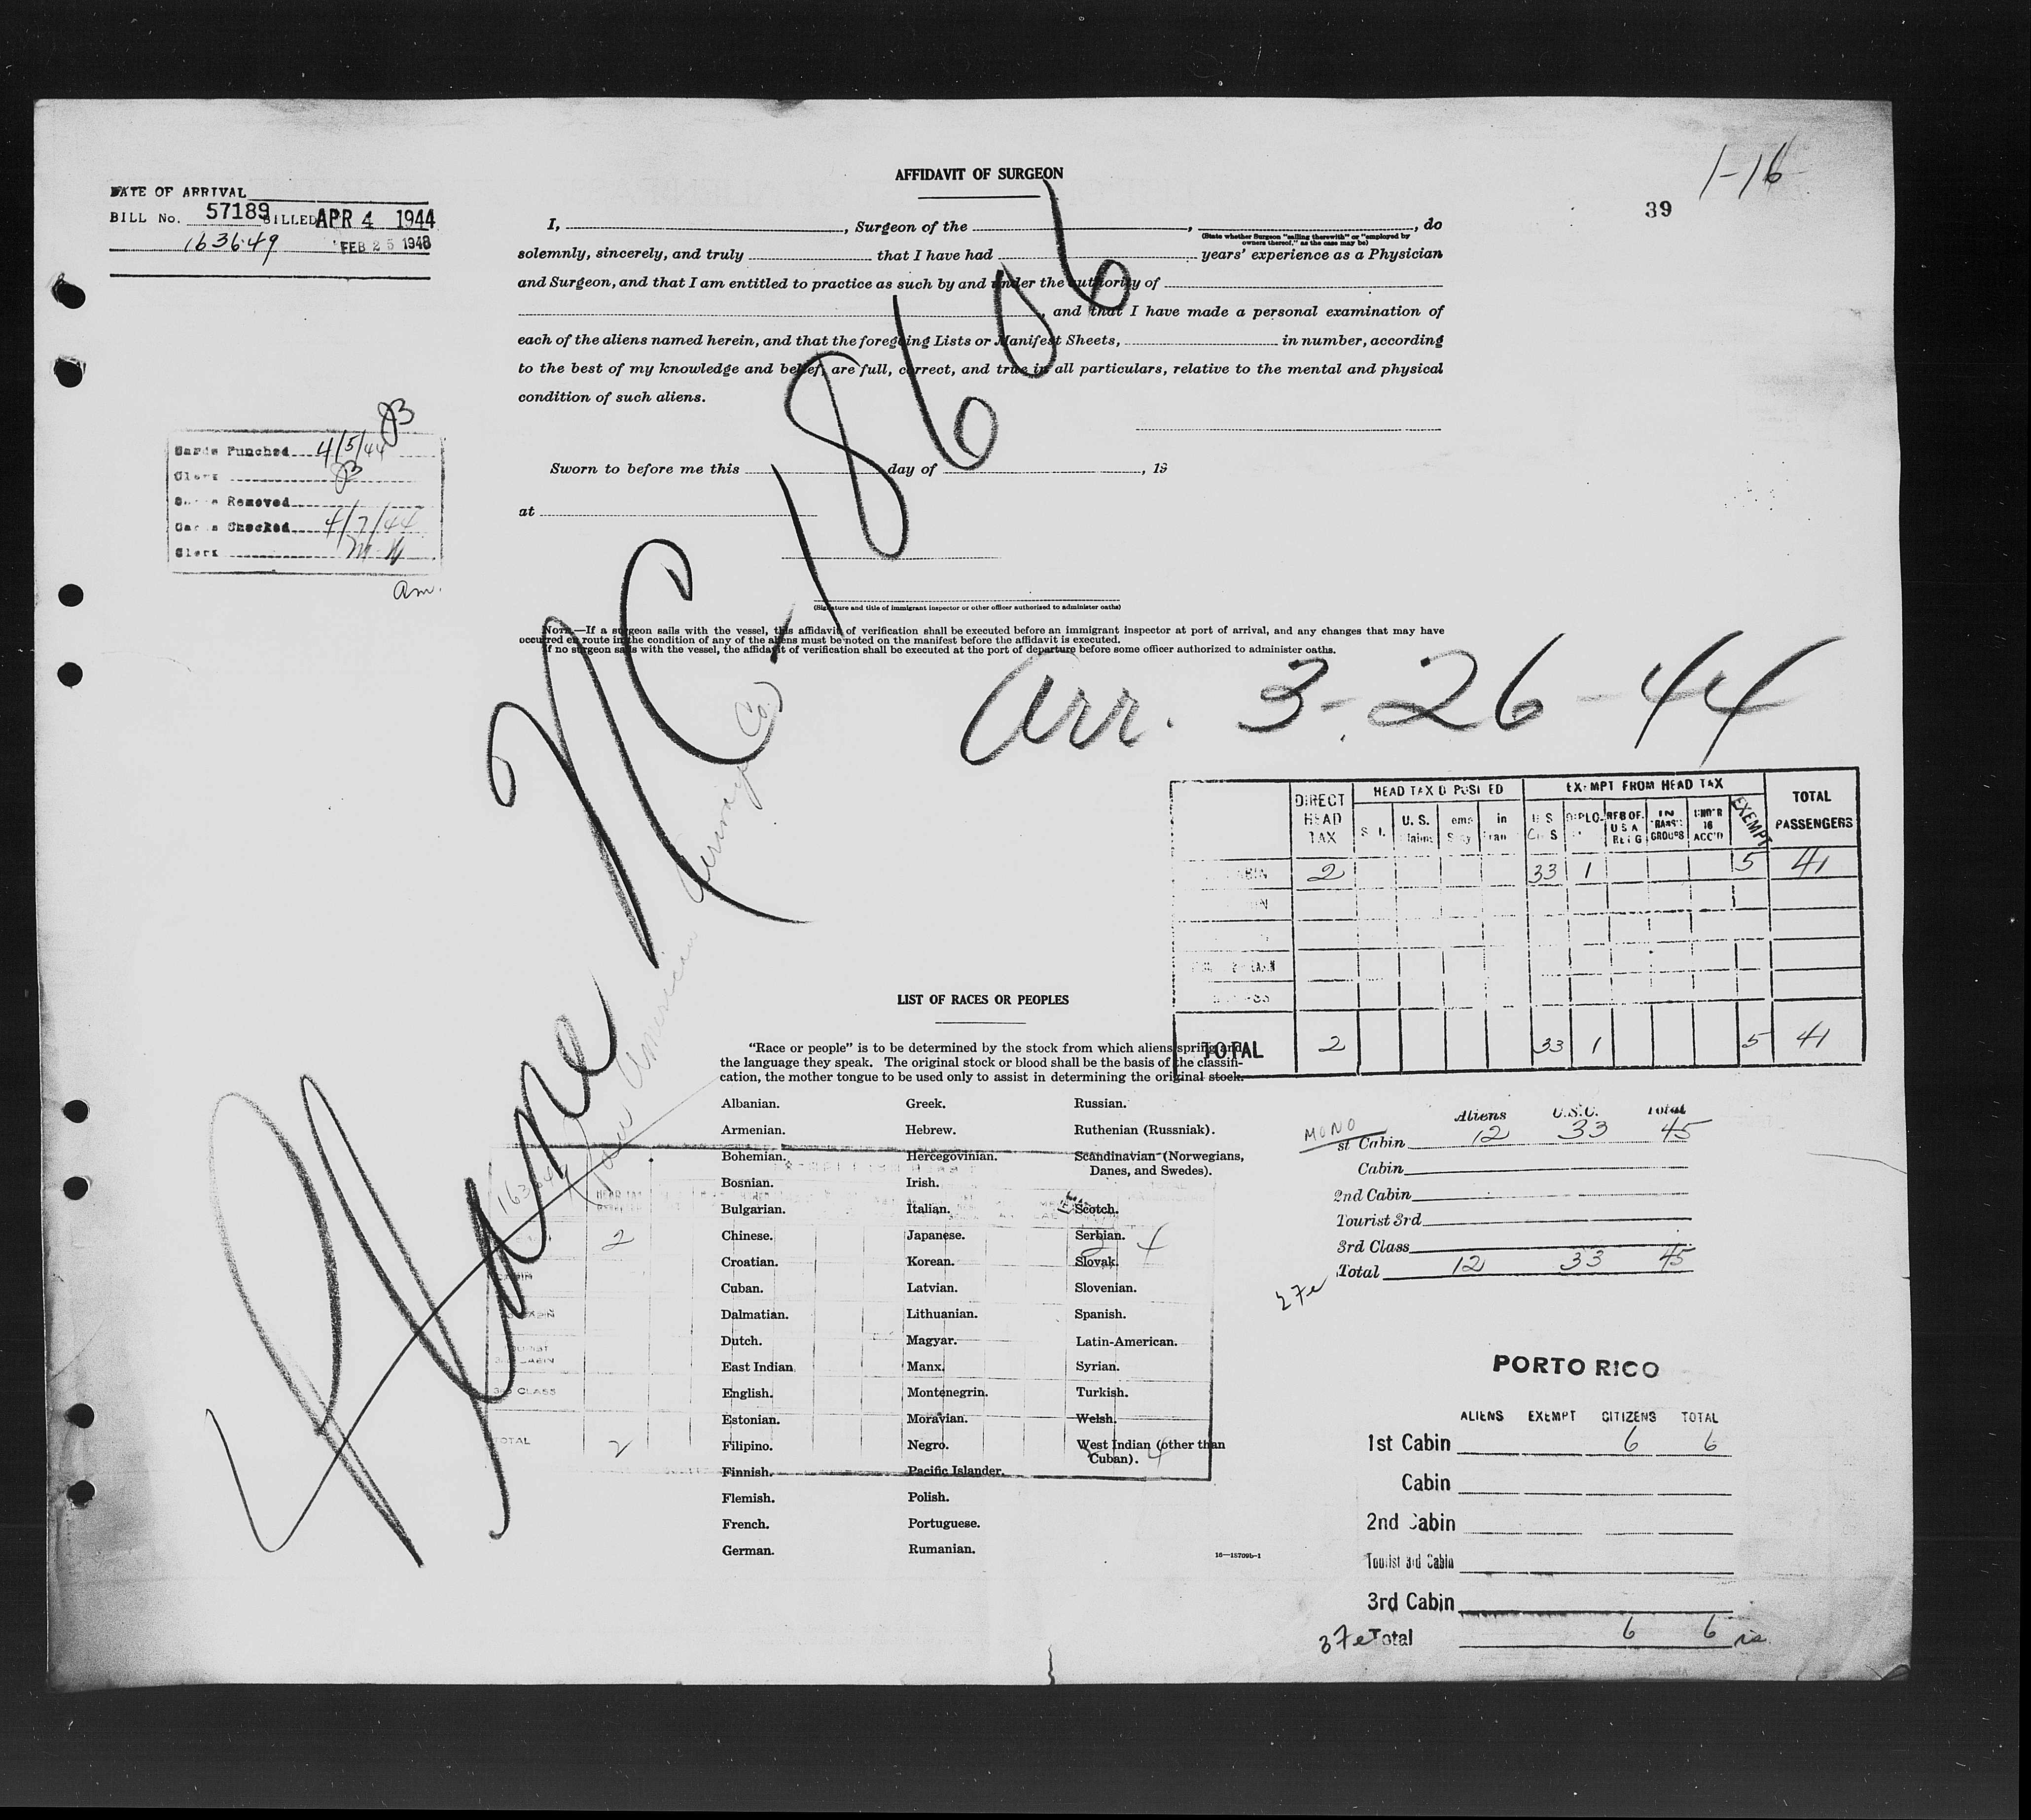 1-16
39
DATE OF ARRIVAL
BILL No. 57189 BILLED APR 4 1944
163649 FEB 25 1948
AFFIDAVIT OF SURGEON
I, , Surgeon of the , , do
(State whether Surgeon "sailing therewith" or "employed by
owners thereof," as the case may be)
solemnly, sincerely, and truly that I have had years' experience as a Physician
and Surgeon, and that I am entitled to practice as such by and under the authority of
, and that I have made a personal examination of
each of the aliens named herein, and that the foregoing Lists or Manifest Sheets, in number, according
to the best of my knowledge and belief, are full, correct, and true in all particulars, relative to the mental and physical
condition of such aliens.
Cards Punched 4/5/44
Clerk
Removed
Cards Checked 4/7/44
Clerk
am.
Sworn to before me this day of , 19
at
(Signature and title of immigrant inspector or other officer authorized to administer oaths)
NOTE.—If a surgeon sails with the vessel, this affidavit of verification shall be executed before an immigrant inspector at port of arrival, and any changes that may have
occurred en route in the condition of any of the aliens must be noted on the manifest before the affidavit is executed.
If no surgeon sails with the vessel, the affidavit of verification shall be executed at the port of departure before some officer authorized to administer oaths.
Plane NC-18606
Pan American Airways Co.
Arr. 3-26-44
DIRECT HEAD TAX
EXEMPT FROM HEAD TAX
TOTAL PASSENGERS
U.S.
IN TRANSIT GROUPS
UNDER 16 ACC'D
EXEMPT
2 33 1 5 41
TOTAL 2 33 1 5 41
LIST OF RACES OR PEOPLES
"Race or people" is to be determined by the stock from which aliens spring and
the language they speak. The original stock or blood shall be the basis of the classifi-
cation, the mother tongue to be used only to assist in determining the original stock.
Albanian.
Armenian.
Bohemian.
Bosnian.
Bulgarian.
Chinese.
Croatian.
Cuban.
Dalmatian.
Dutch.
East Indian.
English.
Estonian.
Filipino.
Finnish.
Flemish.
French.
German.
Greek.
Hebrew.
Hercegovinian.
Irish.
Italian.
Japanese.
Korean.
Latvian.
Lithuanian.
Magyar.
Manx.
Montenegrin.
Moravian.
Negro.
Pacific Islander.
Polish.
Portuguese.
Rumanian.
Russian.
Ruthenian (Russniak).
Scandinavian (Norwegians,
Danes, and Swedes).
Scotch.
Serbian.
Slovak.
Slovenian.
Spanish.
Latin-American.
Syrian.
Turkish.
Welsh.
West Indian (other than
Cuban).
16—18709b-1
163649
2 2 4
CLASS
TOTAL 2 4
Aliens U.S.C. Total
MONO
st Cabin 12 33 45
Cabin
2nd Cabin
Tourist 3rd
3rd Class
Total 12 33 45
PORTO RICO
ALIENS EXEMPT CITIZENS TOTAL
1st Cabin 6 6
Cabin
2nd Cabin
Tourist 3rd Cabin
3rd Cabin
Total 6 6